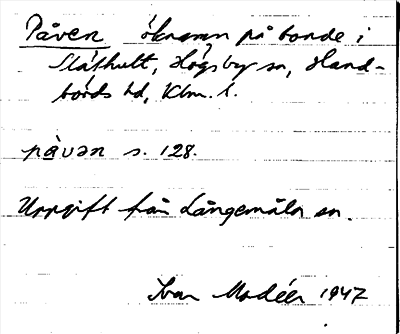 Påven öknamn på bonde i
Slåthult, Högsby sn, Hand-
börds hd, Klm. l.
påvən s. 128.
Uppgift från Långemåla sn.
Ivar Modéer 1947